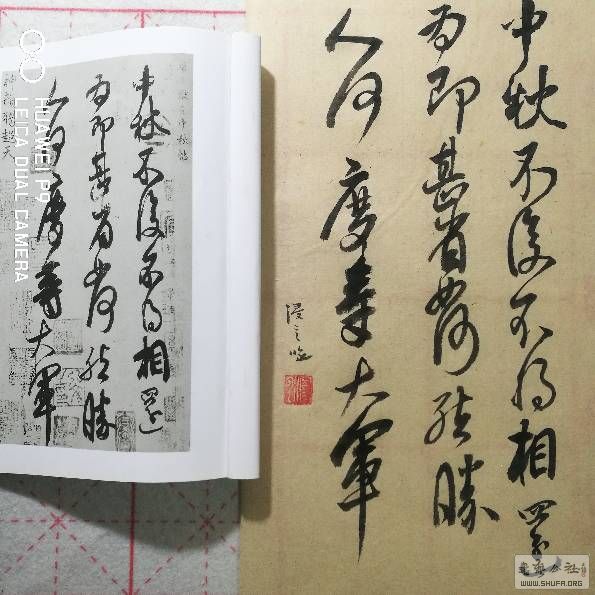 中秋不復不得相還
為即甚省如何然勝
人何慶等大軍
中秋不復不得相還
為即甚省如何然勝
人何慶等大軍
HUAWEI P9
LEICA DUAL CAMERA
WWW.SHUFA.ORG